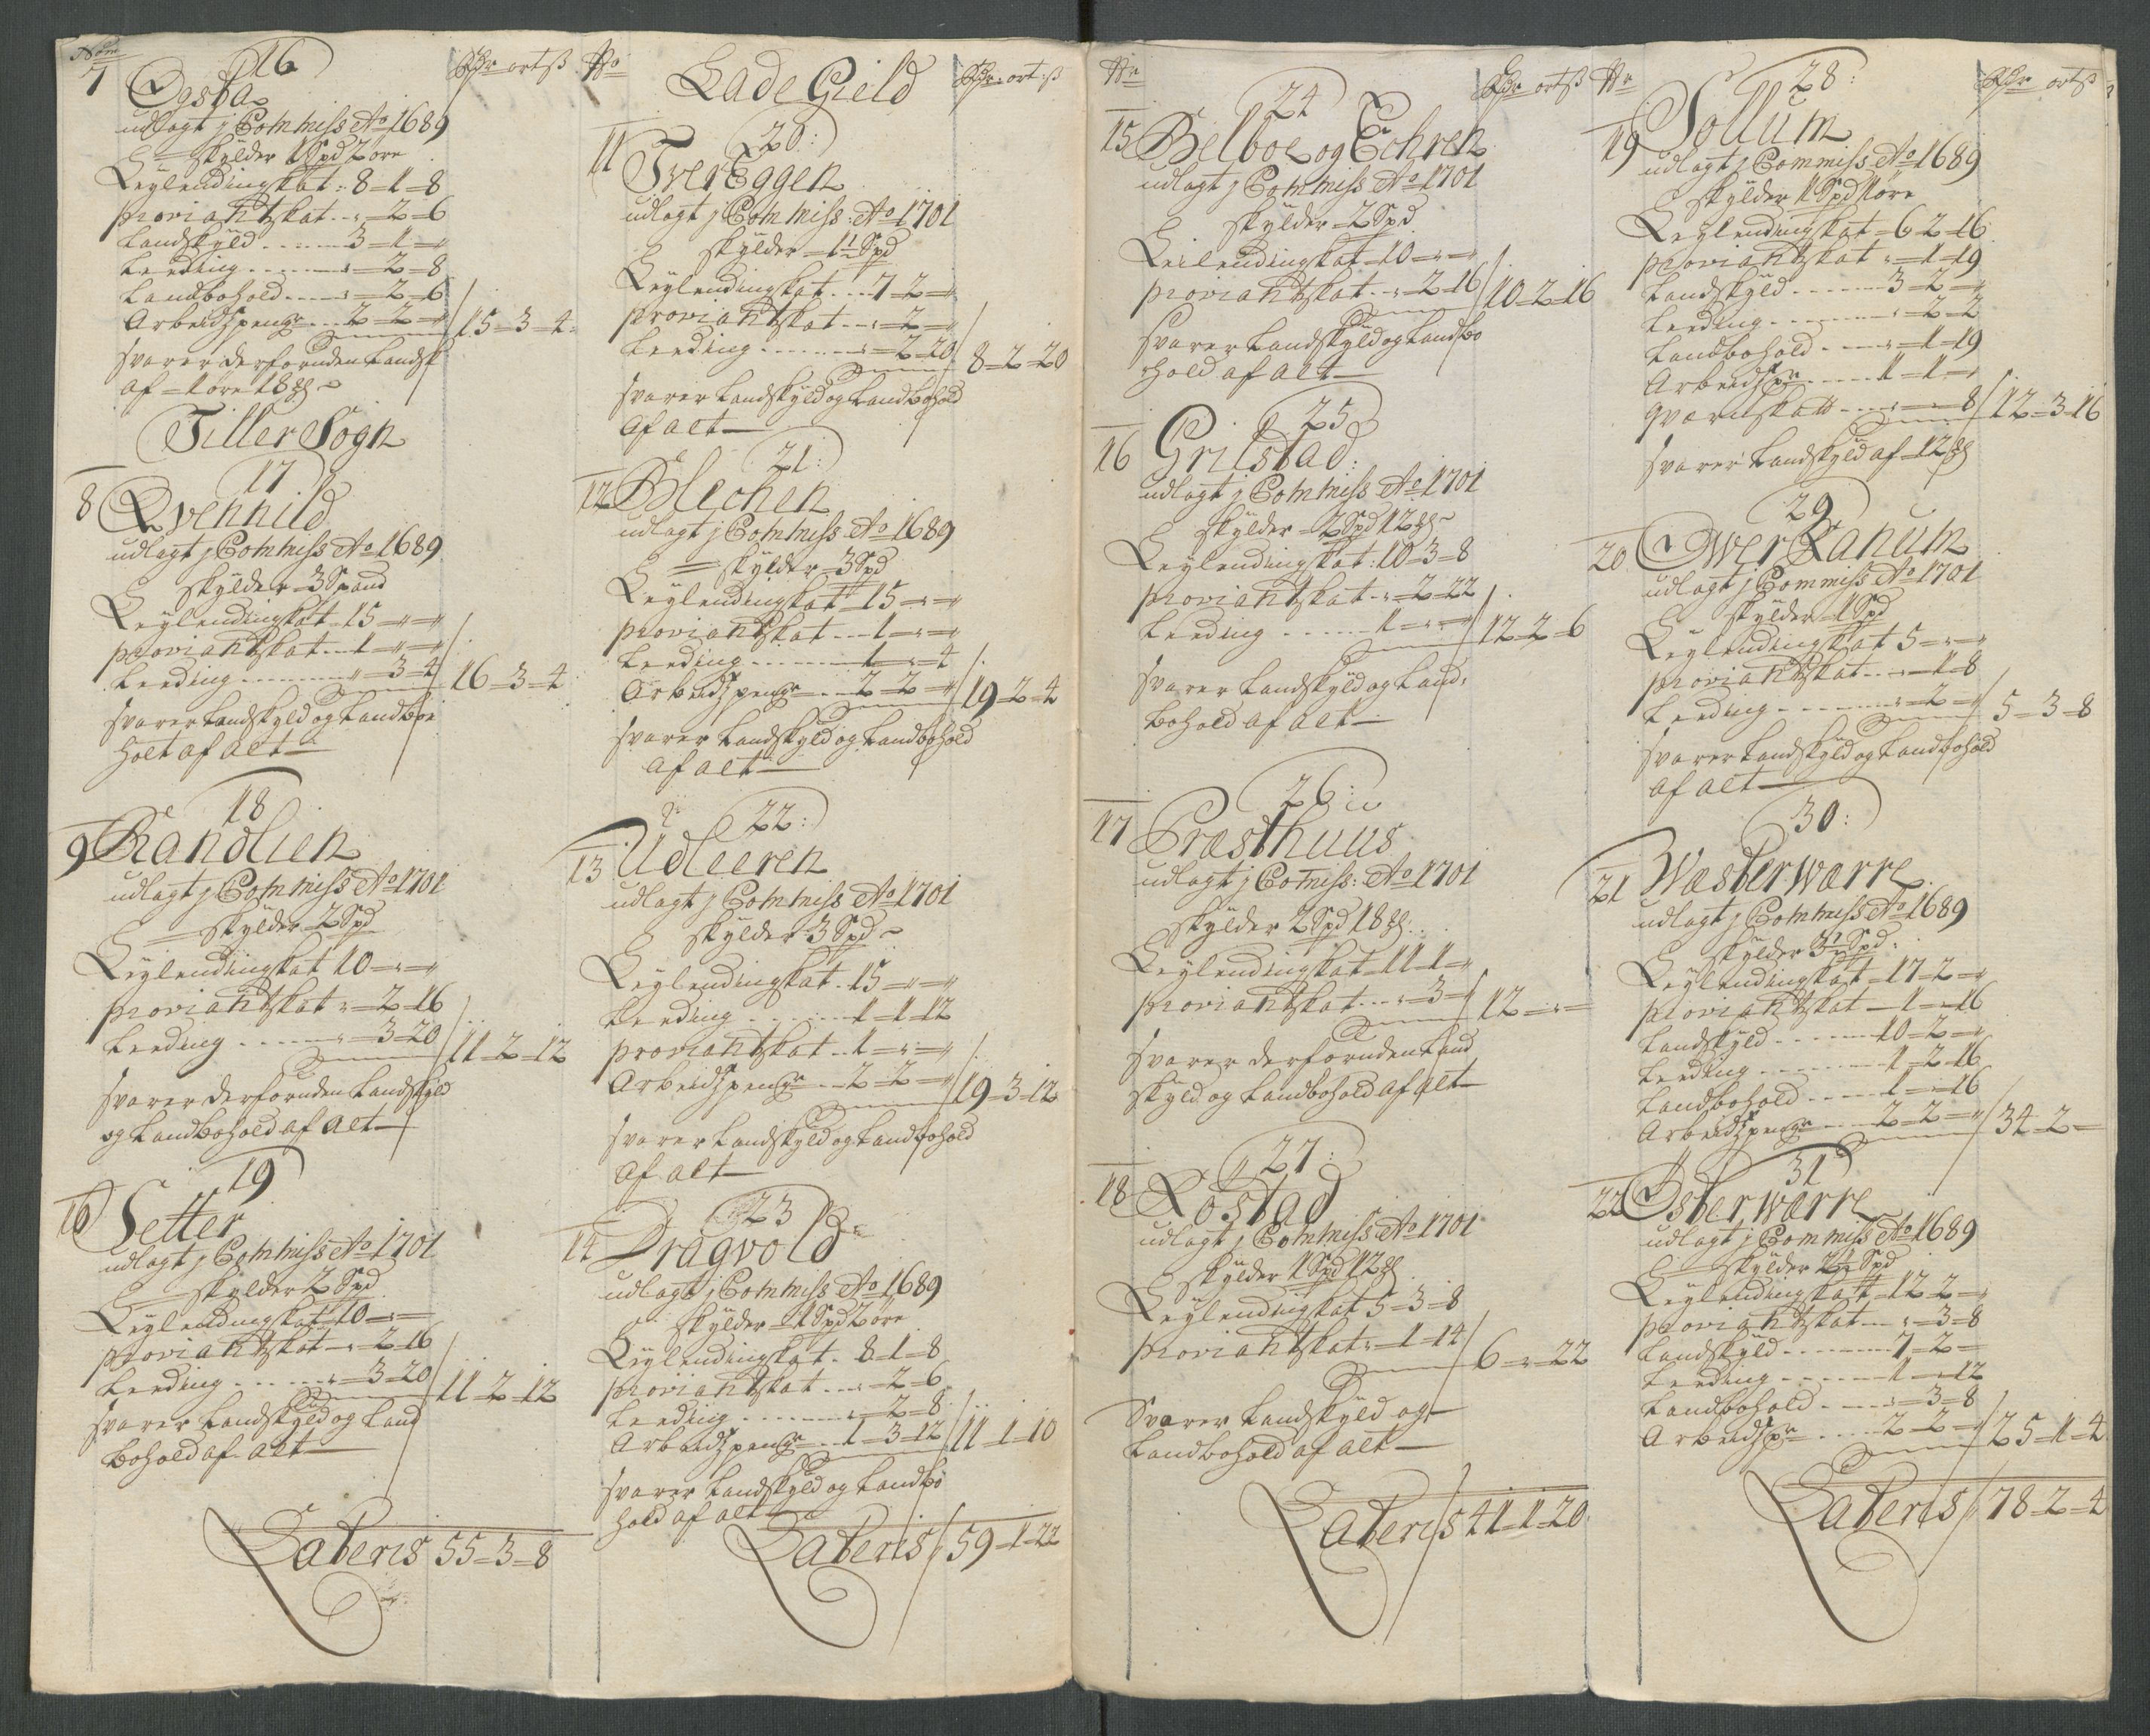 Num
16
Rdr ort ß
7 Ogsta
udlagt j Commiss Ao 1689
skylder 1 Spd 2 öre
Leylendingskat: 8-1-8
proviantskat . . " - 2-6
Landskyld . . . . . 3-1-"
Leeding . . . . . " - 2-8
Landbohold . . . . " - 2-6
Arbeidzpenge . . 2-2-" / 15-3-4
svarer derforuden Landsk
af 1 öre 18
Tiller Sogn
17
8 Qvennild
udlagt j Commiss Ao 1689
skylder 3 Spand
Leylendingskat 15-"-"
proviantskat . . . 1-"-"
Leeding . . . . . . " - 3-4 / 16-3-4
svarer Landskyld og Landboe
holt af alt
18
9 Randlien
udlagt j Commiss Ao 1701
skylder 2 Spd
Leylendingskat 10-"-"
proviantskat " - 2-16
Leeding . . . . . " - 3-20 / 11-2-12
svarer derforuden Landskyld
og Landbohold af alt
19
10 Setter
udlagt j Commiss Ao 1701
skylder 2 Spd
Leylendingskat 10-"-"
proviantskat " - 2-16
Leeding . . . . . " - 3-20 / 11-2-12
svarer Landskyld og Land
bohold af alt
Lateris 55-3-8
No
Lade Gield
Rdr: ort: ß
20:
11 Tver Eggen
udlagt j Commiss: Ao 1701
skylder 1½ Spd
Leylendingskat . . . 7-2-"
proviantskat . . . " - 2-"
Leeding . . . . . . " - 2-20 / 8-2-20
svarer Landskyld og Landbohold
af alt
21:
12 Blechen
udlagt j Commiss Ao 1689
skylder 3 Spd
Leylendingskat 15-"-"
proviantskat . . . 1-"-"
Leeding . . . . . . 1-"-4
Arbeidzpenge . . 2-2-" / 19-2-4
svarer Landskyld og Landbohold
af alt
22:
13 Udleeren
udlagt j Commiss Ao 1701
skylder 3 Spd
Leylendingskat . 15-"-"
Leeding . . . . . . 1-1-12
proviantskat . . 1-"-"
Arbeidzpenge . . 2-2-" / 19-3-12
svarer Landskyld og Landbohold
af alt
23
14 Dragvold
udlagt j Commiss Ao 1689
skylder 1 Spd 2 öre
Leylendingskat . 8-1-8
proviantskat . . . " - 2-6
Leeding . . . . . . " - 2-8
Arbeidzpenge . . 1-3-12 / 11-1-10
svarer Landskyld og Landbo
hold af alt
Lateris / 59-1-22
No
24
Rdr ort ß
15 Belboe og Echren
udlagt j Commiss Ao 1701
skylder 2 Spd
Leilendingskat 10-"-"
proviantskat . . " 2-16 / 10-2-16
svarer Landskyld og Landbo
hold af alt
25
16 Grilstad:
udlagt j Commiss Ao 1701
skylder 2 Spd 12
Leylendingskat: 10-3-8
proviantskat . . " - 2-22
Leeding . . . . . 1-"-" / 12-2-6
svarer Landskyld og Land:
bohold af alt
26:
17 Præsthuus
udlagt j Comiss: Ao 1701
skylder 2 Spd 18
Leylendingskat 11-1-"
proviantskat . . . " - 3-" / 12-"-"
svarer derforuden Land
skyld og Landbohold af alt
27:
18 Rostad
udlagt j Commiss Ao 1701
skylder 1 Spd 12
Leylendingskat 5-3-8
proviantskat " - 1-14 / 6-"-22
Svarer Landskyld og
Landbohold af alt
Lateris 41-1-20
No
28:
Rdr ort ß
19 Sollum
udlagt j Commiss Ao 1689
skylder 1 Spd 1 öre
Leylendingskat 6-2-16
proviantskat " - 1-19
Landskyld . . . . . 3-2-"
Leeding . . . . . . " - 2-2
Landbohold . . . . " - 1-19
Arbeidzpe . . . . . 1-1-"
qvernskatt . . . . " - " - 8 / 12-3-16
svarer Landskyld af 12
29
20 Ower Ranum
udlagt j Commiss Ao 1701
skylder 1 Spd
Leylendingskat 5-"-"
proviantskat . . " - 1-8
Leeding . . . . . . " - 2-" / 5-3-8
svarer Landskyld og Landbohold
af alt
30:
21 Wæster wærre
udlagt j Commiss Ao 1689
skylder 3½ Spd:
Leylendingskat 17-2-"
proviantskat 1-"-16
Landskyld . . . . . 10-2-"
Leeding . . . . . . 1-2-16
Landbohold . . . . 1-"-16
Arbeidzpenge . . . 2-2-" / 34-2-"
31
22 Öster wærre
udlagt j Commiss Ao 1689
skylder 2½ Spd
Leylendingskatt 12-2-"
proviantskat . . " - 3-8
Landskyld . . . . . 7-2-
Leeding . . . . . . 1-"-12
Landbohold . . . . " - 3-8
Arbeidzpe . . . . . 2-2-" / 25-1-4
Lateris / 78-2-4